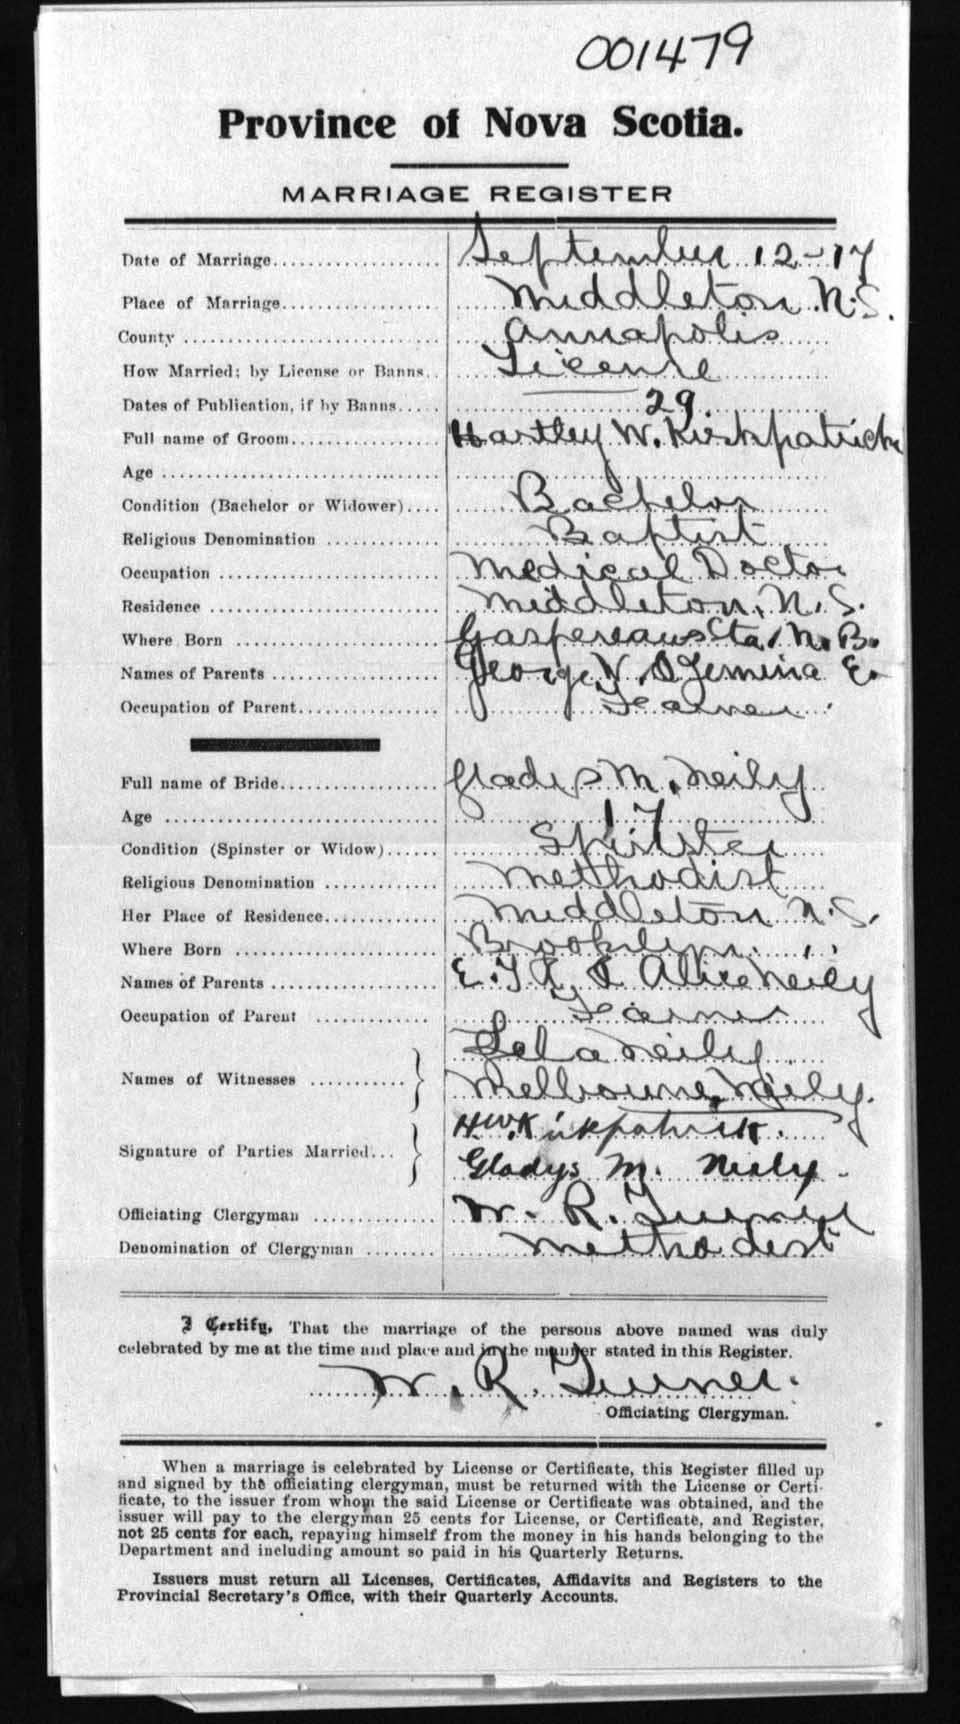 001479
Province of Nova Scotia.
MARRIAGE REGISTER
Date of Marriage.................... September 12-17
Place of Marriage.................. Middleton N.S.
County .............................. Annapolis
How Married; by License or Banns.. License
Dates of Publication, if by Banns..... 29.
Full name of Groom................. Hartley W. Kirkpatrick
Age .................................
Condition (Bachelor or Widower).... Bachelor
Religious Denomination ............. Baptist
Occupation .......................... Medical Doctor
Residence ........................... Middleton, N.S.
Where Born ........................ Gaspereaux Sta, N.B.
Names of Parents .................... George V. & Jemina E.
Occupation of Parent................. Farmer
Full name of Bride................... Gladys M. Neily
Age ................................. 17
Condition (Spinster or Widow)...... Spinster
Religious Denomination ............. Methodist
Her Place of Residence............. Middleton N.S.
Where Born ........................ Brooklyn. , ,
Names of Parents .................... E. J. & Alice Neily
Occupation of Parent .............. Farmer
Neily
Names of Witnesses ........... } Melbourne Neily.
H.W. Kirkpatrick.
Signature of Parties Married... } Gladys M. Neily
Officiating Clergyman .............. W. R. Turner
Denomination of Clergyman ........ Methodist
I Certify, That the marriage of the persons above named was duly
celebrated by me at the time and place and in the manner stated in this Register.
W. R. Turner.
Officiating Clergyman.
When a marriage is celebrated by License or Certificate, this Register filled up
and signed by the officiating clergyman, must be returned with the License or Certi-
ficate, to the issuer from whom the said License or Certificate was obtained, and the
issuer will pay to the clergyman 25 cents for License, or Certificate, and Register,
not 25 cents for each, repaying himself from the money in his hands belonging to the
Department and including amount so paid in his Quarterly Returns.
Issuers must return all Licenses, Certificates, Affidavits and Registers to the
Provincial Secretary's Office, with their Quarterly Accounts.